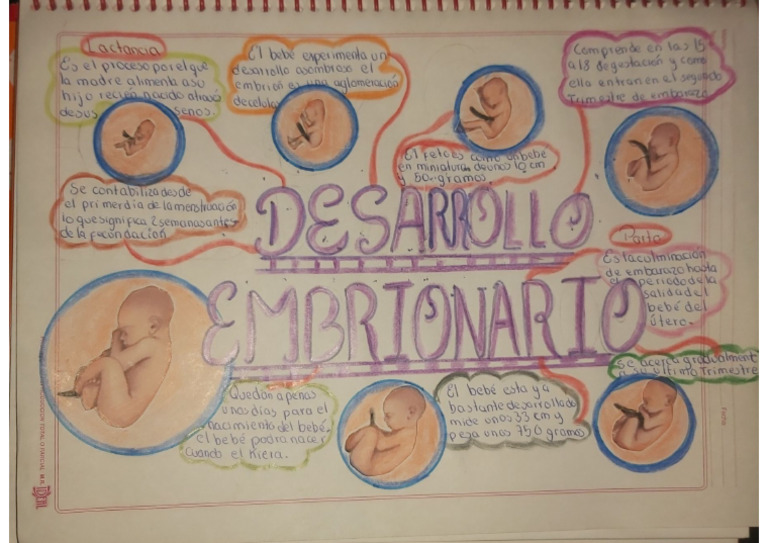 Lactancia
Es el proceso por el que
la madre alimenta a su
hijo recien nacido através
de sus senos.
El bebé experimenta un
desarrollo asombroso el
embrión es una aglomeración
de celulas
Comprende en las 15
a 18 de gestación y como
ella entran en el segundo
Trimestre de embarazo
El feto es como un bebé
en miniatura, de unos 10 cm
y 50 gramos.
Se contabiliza desde
el primer dia de la menstruación
lo que significa 2 semanas antes
de la fecundación
DESARROLLO
EMBRIONARIO
Parto
Es la culminación
de embarazo hasta
el periodo de la
salida del
bebé del
útero.
se acepta gradualment
su ultimo Trimestre
Quedan apenas
unos días para el
nacimiento del bebé.
El bebé podra nacer
cuando el
El bebé esta ya
bastante desarrollado
mide unos 33 cm y
peza unos 750 gramos
Fecha